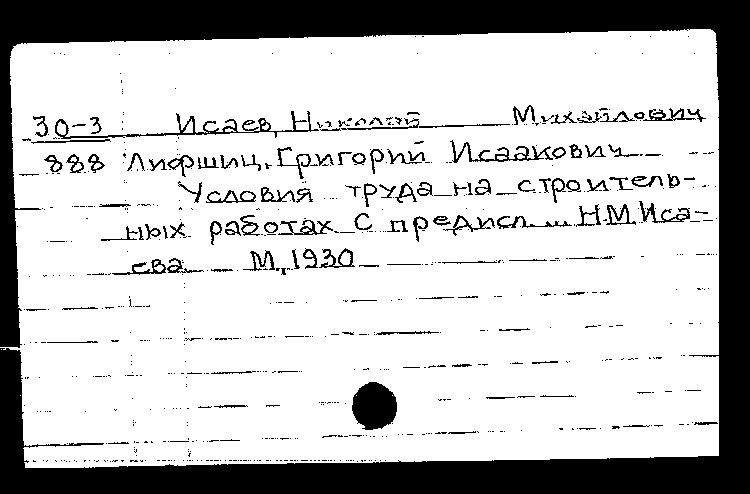 30-3 Исаев, Николай Михайлович
888 Лифшиц, Григорий Исаакович
Условия труда на строитель-
ных работах С предисл. ... Н.М.Иса-
ева М., 1930